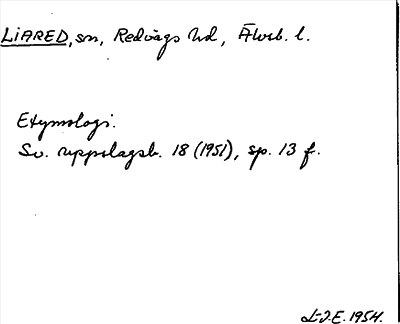 LIARED, sn, Redvägs hd, Älvsb. l.
Etymologi.
Sv. uppslagsb. 18 (1951), sp. 13 f.
L-J.E. 1954.